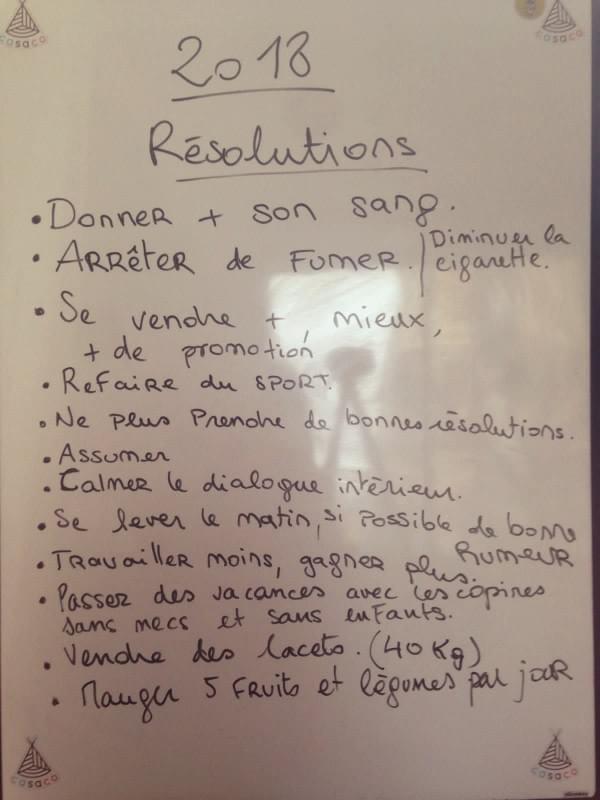 casaca
casaca
2018
Résolutions
• Donner + son sang.
• Arrêter de fumer. / Diminuer la
cigarette.
• Se vendre +, mieux,
+ de promotion
• Refaire du sport.
• Ne plus prendre de bonnes résolutions.
• Assumer
• Calmer le dialogue intérieur.
• Se lever le matin, si possible de bonne
humeur
• Travailler moins, gagner plus.
• Passer des vacances avec les copines
sans mecs et sans enfants.
• Vendre des lacets. (40 Kg)
• Manger 5 fruits et légumes par jour
casaca
casaca